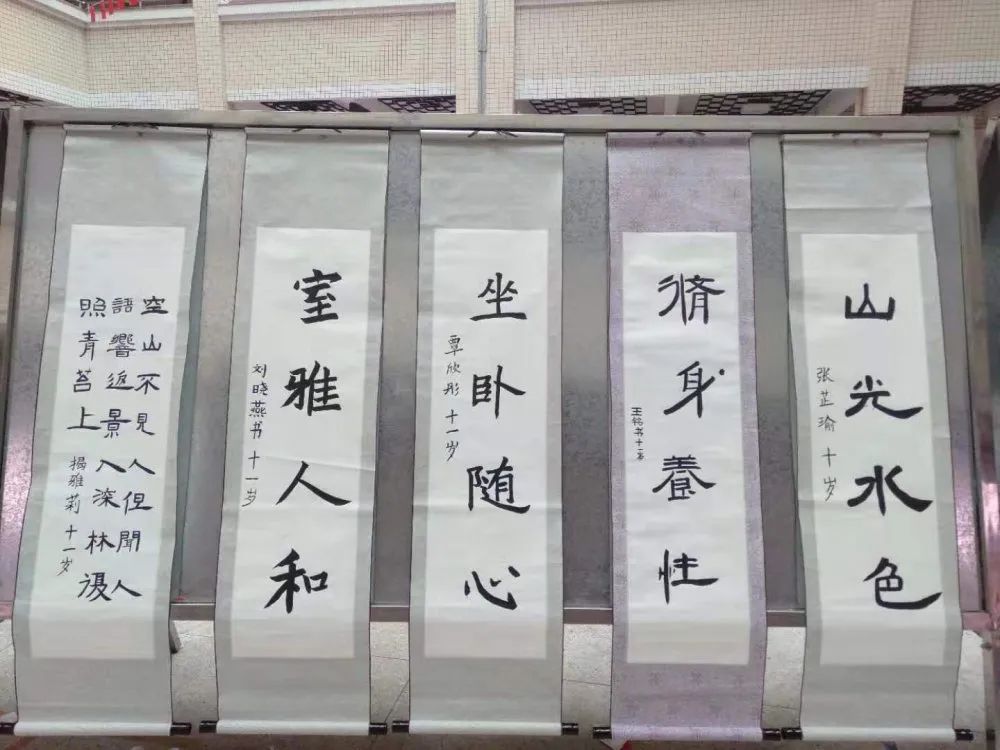 山光水色
张芷瑜 十岁
脩身養性
王铭书十二岁
坐卧随心
覃欣彤 十一岁
室雅人和
刘晓燕书 十一岁
空山不見人但聞人
語響返景入深林復
照青苔上
揭雅莉 十一岁